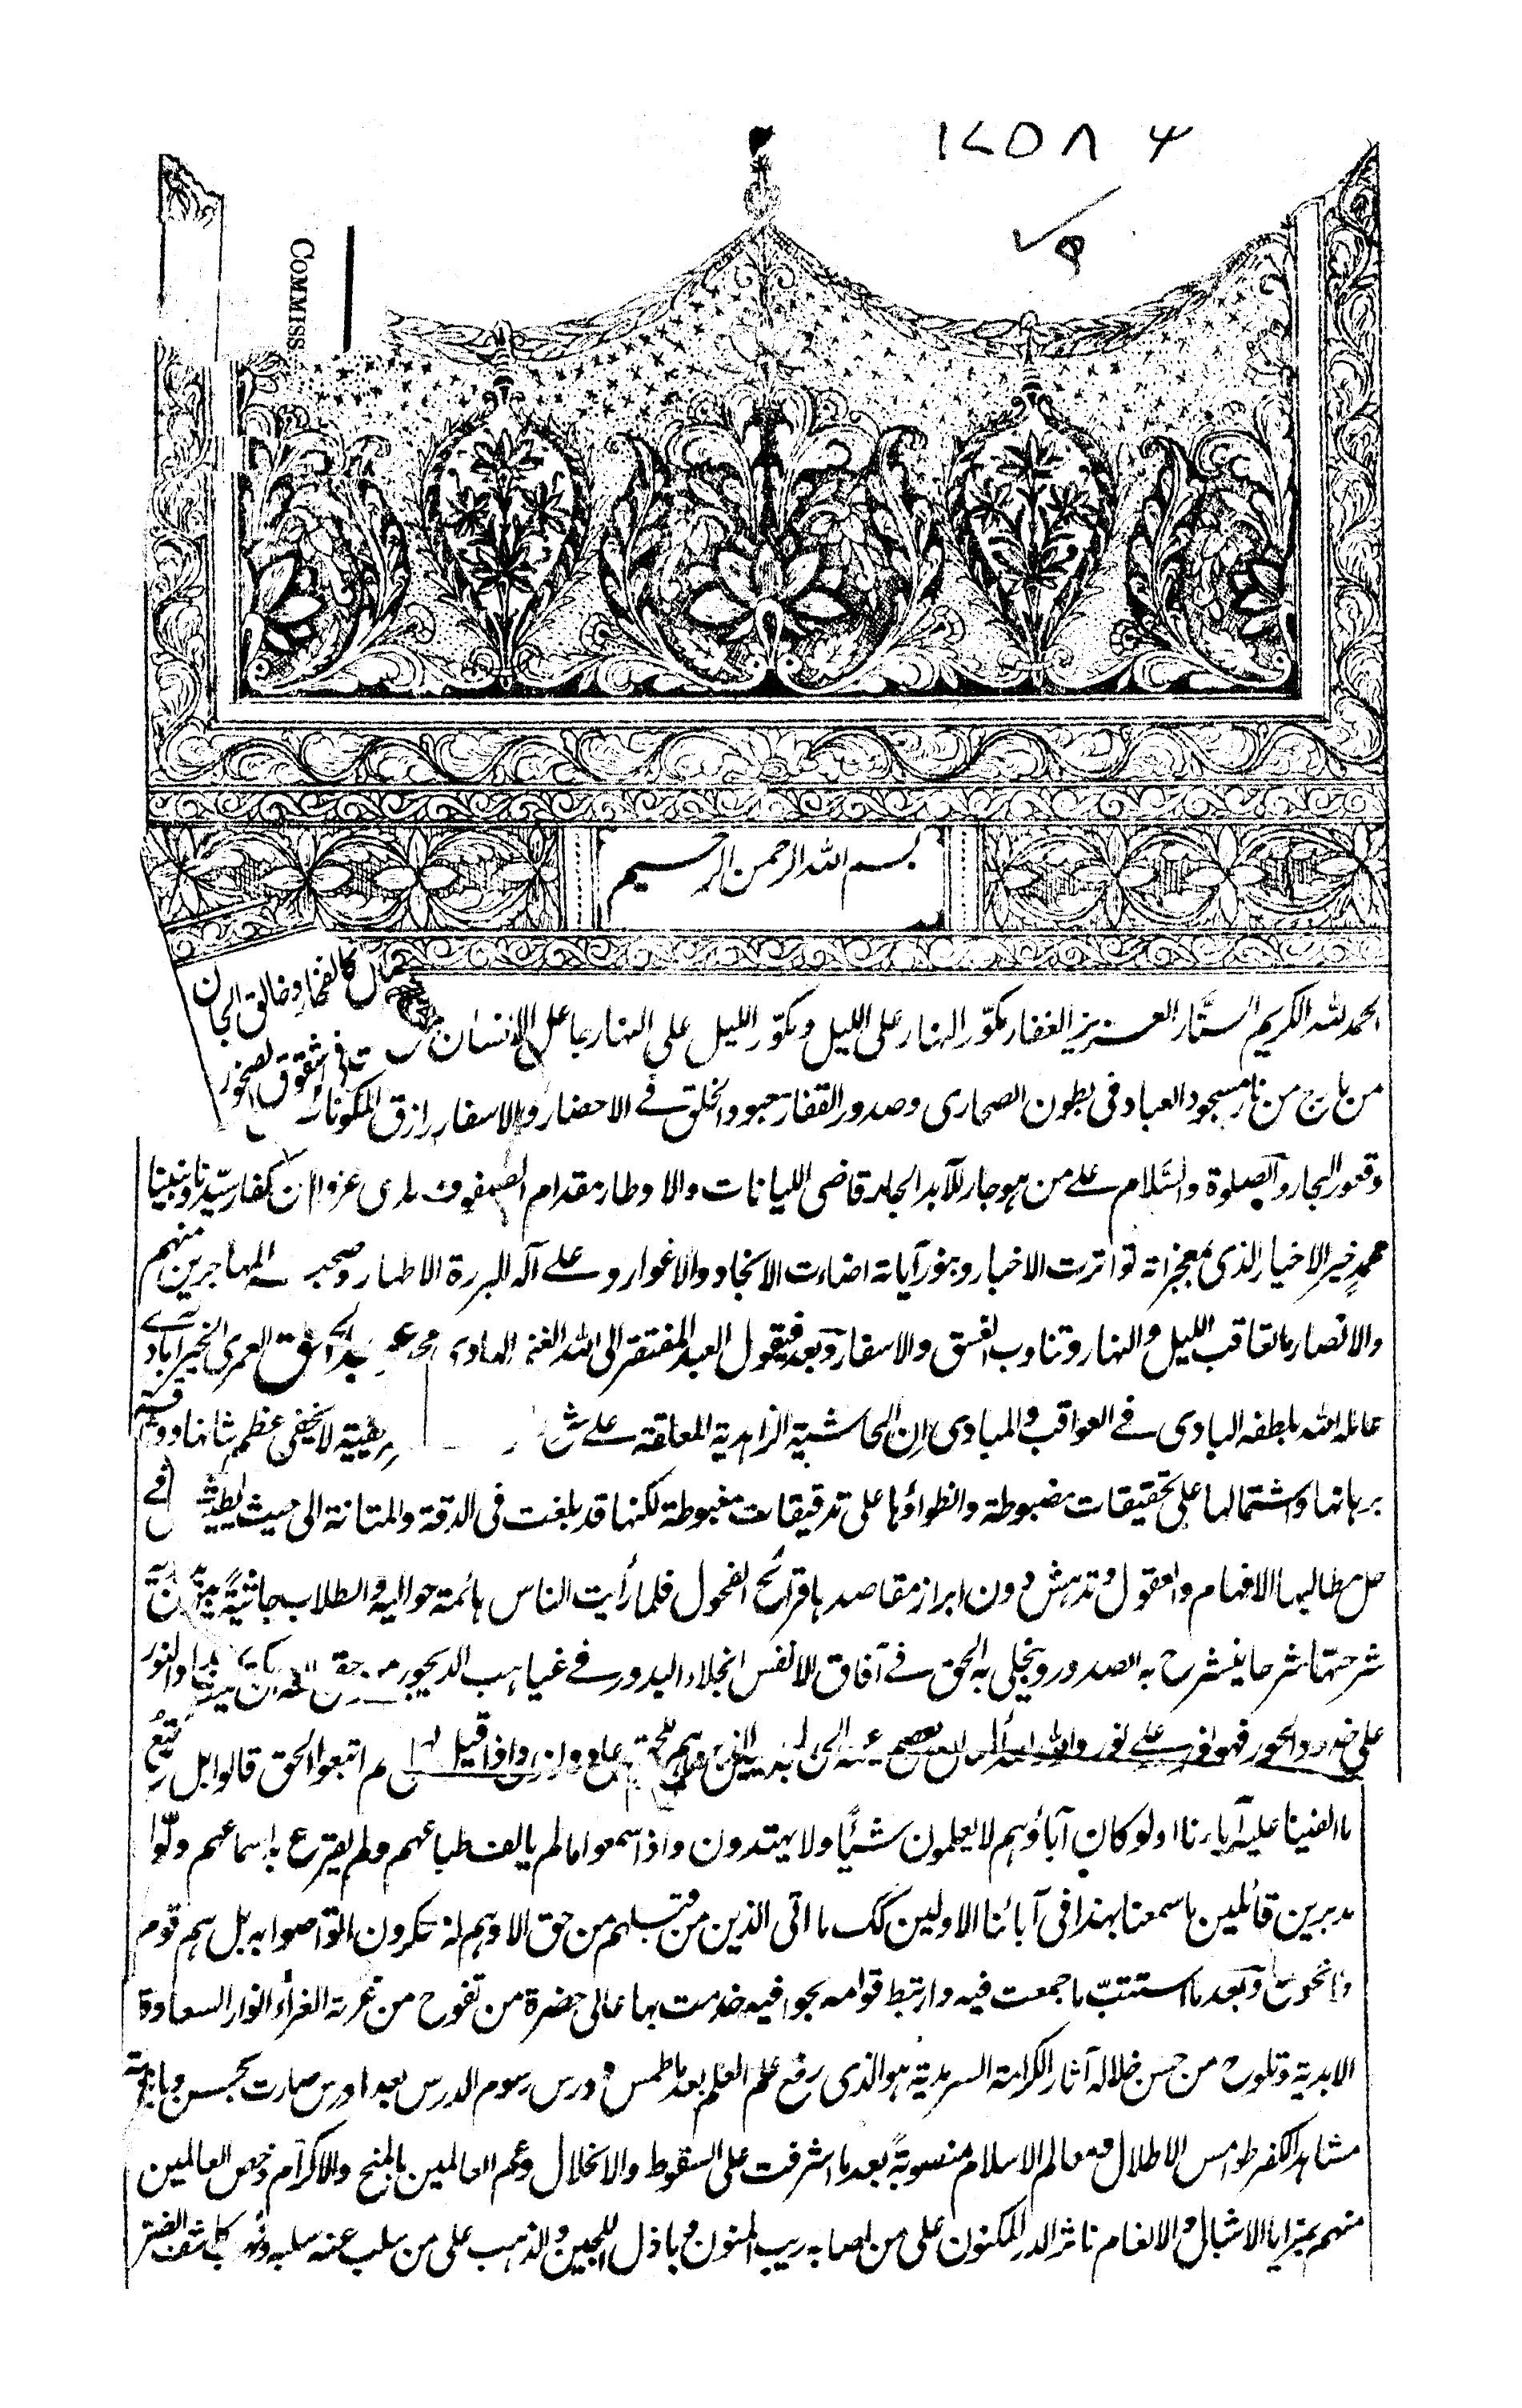 ۱۲۵۸۴
COMMISS
بسم الله الرحمن الرحيم
الحمد لله الكريم الستّار العزيز الغفار مكوّر النهار على الليل ومكوّر الليل على النهار جاعل الانسان من صلصال كالفخار وخالق الجان
من مارج من نار مسجود العباد في بطون الصحارى وصدور القفار معبود الخلق في الاحضار والاسفار رازق المكونات في شقوق الصخور
وقعور البحار والصلوة والسّلام على من هو جار للآبد الجابد قاضى اللبانات والاوطار مقدام الصفوف لدى غزوان كفار سيّدنا ونبينا
محمدٍ خير الاخيار الذى بمعجزاته تواترت الاخبار وبنور آياته اضاءت الانجاد والاغوار وعلى آله البررة الاطهار وصحبه المهاجرين منهم
والانصار ما تعاقب الليل والنهار وتناوب الغسق والاسفار وبعد فيقول العبد المفتقر الى الله الغنى الهادى محمد عبد الحق العمرى الخيرآبادى
عامله الله بلطفه البادى في العواقب والمبادى ان الحاشية الزاهدية المعلقة على لا يخفى عظم شانها ووثاقة
برهانها واشتمالها على تحقيقات مضبوطة وانطواؤها على تدقيقات مغبوطة لكنها قد بلغت في الدقة والمتانة الى حيث يطيش في
حل مطالبها الافهام والعقول وتدهش دون ابراز مقاصدها قرائح الفحول فلما رأيت الناس هائمة حواليه والطلاب جاثيةً
شرحتها شرحا ينشرح به الصدور وينجلى به الحق في آفاق الانفس انجلاء البدور في غياهب الديجور والنور
على خدود الحور فهو نور على نور واذا قيل لهم اتبعوا الحق قالوا بل نتبع
ما الفينا عليه آباءنا اولو كان آباؤهم لا يعلمون شيئًا ولا يهتدون واذا سمعوا ما لم يالف طباعهم ولم يقرع به اسماعهم ولّوا
مدبرين قائلين ما سمعنا بهذا في آبائنا الاولين كك ما اتى الذين من قبلهم من حق الا وهم له منكرون اتواصوا به بل هم قوم
وبعد ما استتبّ ما جمعت فيه وارتبط قوامه بخوافيه خدمت بها عالى حضرة من تفوح من غرته الغراء انوار السعادة
الابدية وتلوح من حسن خلاله آثار الكرامة السرمدية هو الذى رفع علم العلم بعد ما طمس ودرس رسوم الدرس بعد ما درس صارت بحسن
مشاهد الكفر طوامس الاطلال ومعالم الاسلام منصوبةً بعد ما اشرفت على السقوط والانحلال وعم العالمين بالمنح والاكرام وخص العالمين
منهم بمزايا الاشبال والانعام ناثر الدر المكنون على من اصابه ريب المنون وباذل اللجين والذهب على من سلب عنه سلبه وذهب كاشف الضر